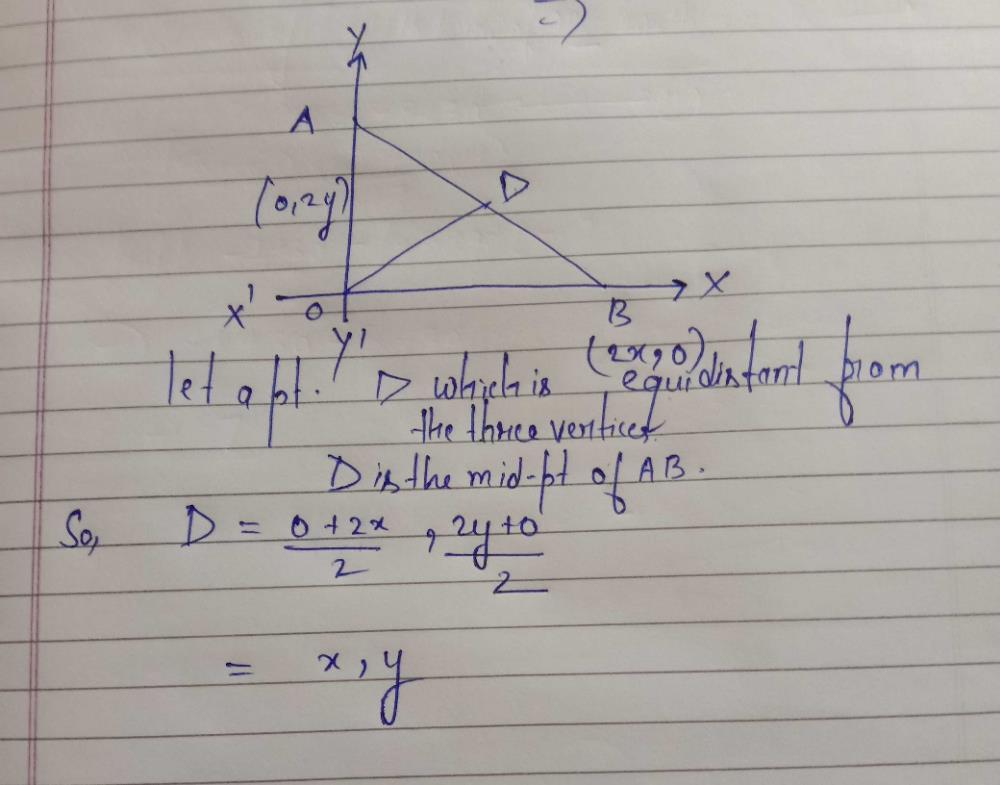 Y
A
D
(0,2y)
X' O B X
Y' (2x,0)
let a pt. D which is equidistant from
the three vertices
D is the mid-pt of AB.
So, D = 0+2x/2 , 2y+0/2
= x, y